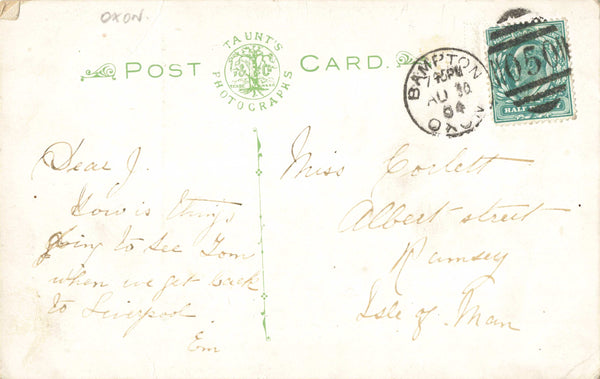 OXON.
POST CARD.
TAUNT'S
PHOTOGRAPHS
BAMPTON
7 45PM
AU 30
04
OXON
HALF
Dear J.
How is things
going to see Tom
when we get back
to Liverpool
Em
Miss Corlett
Albert street
Ramsey
Isle of Man